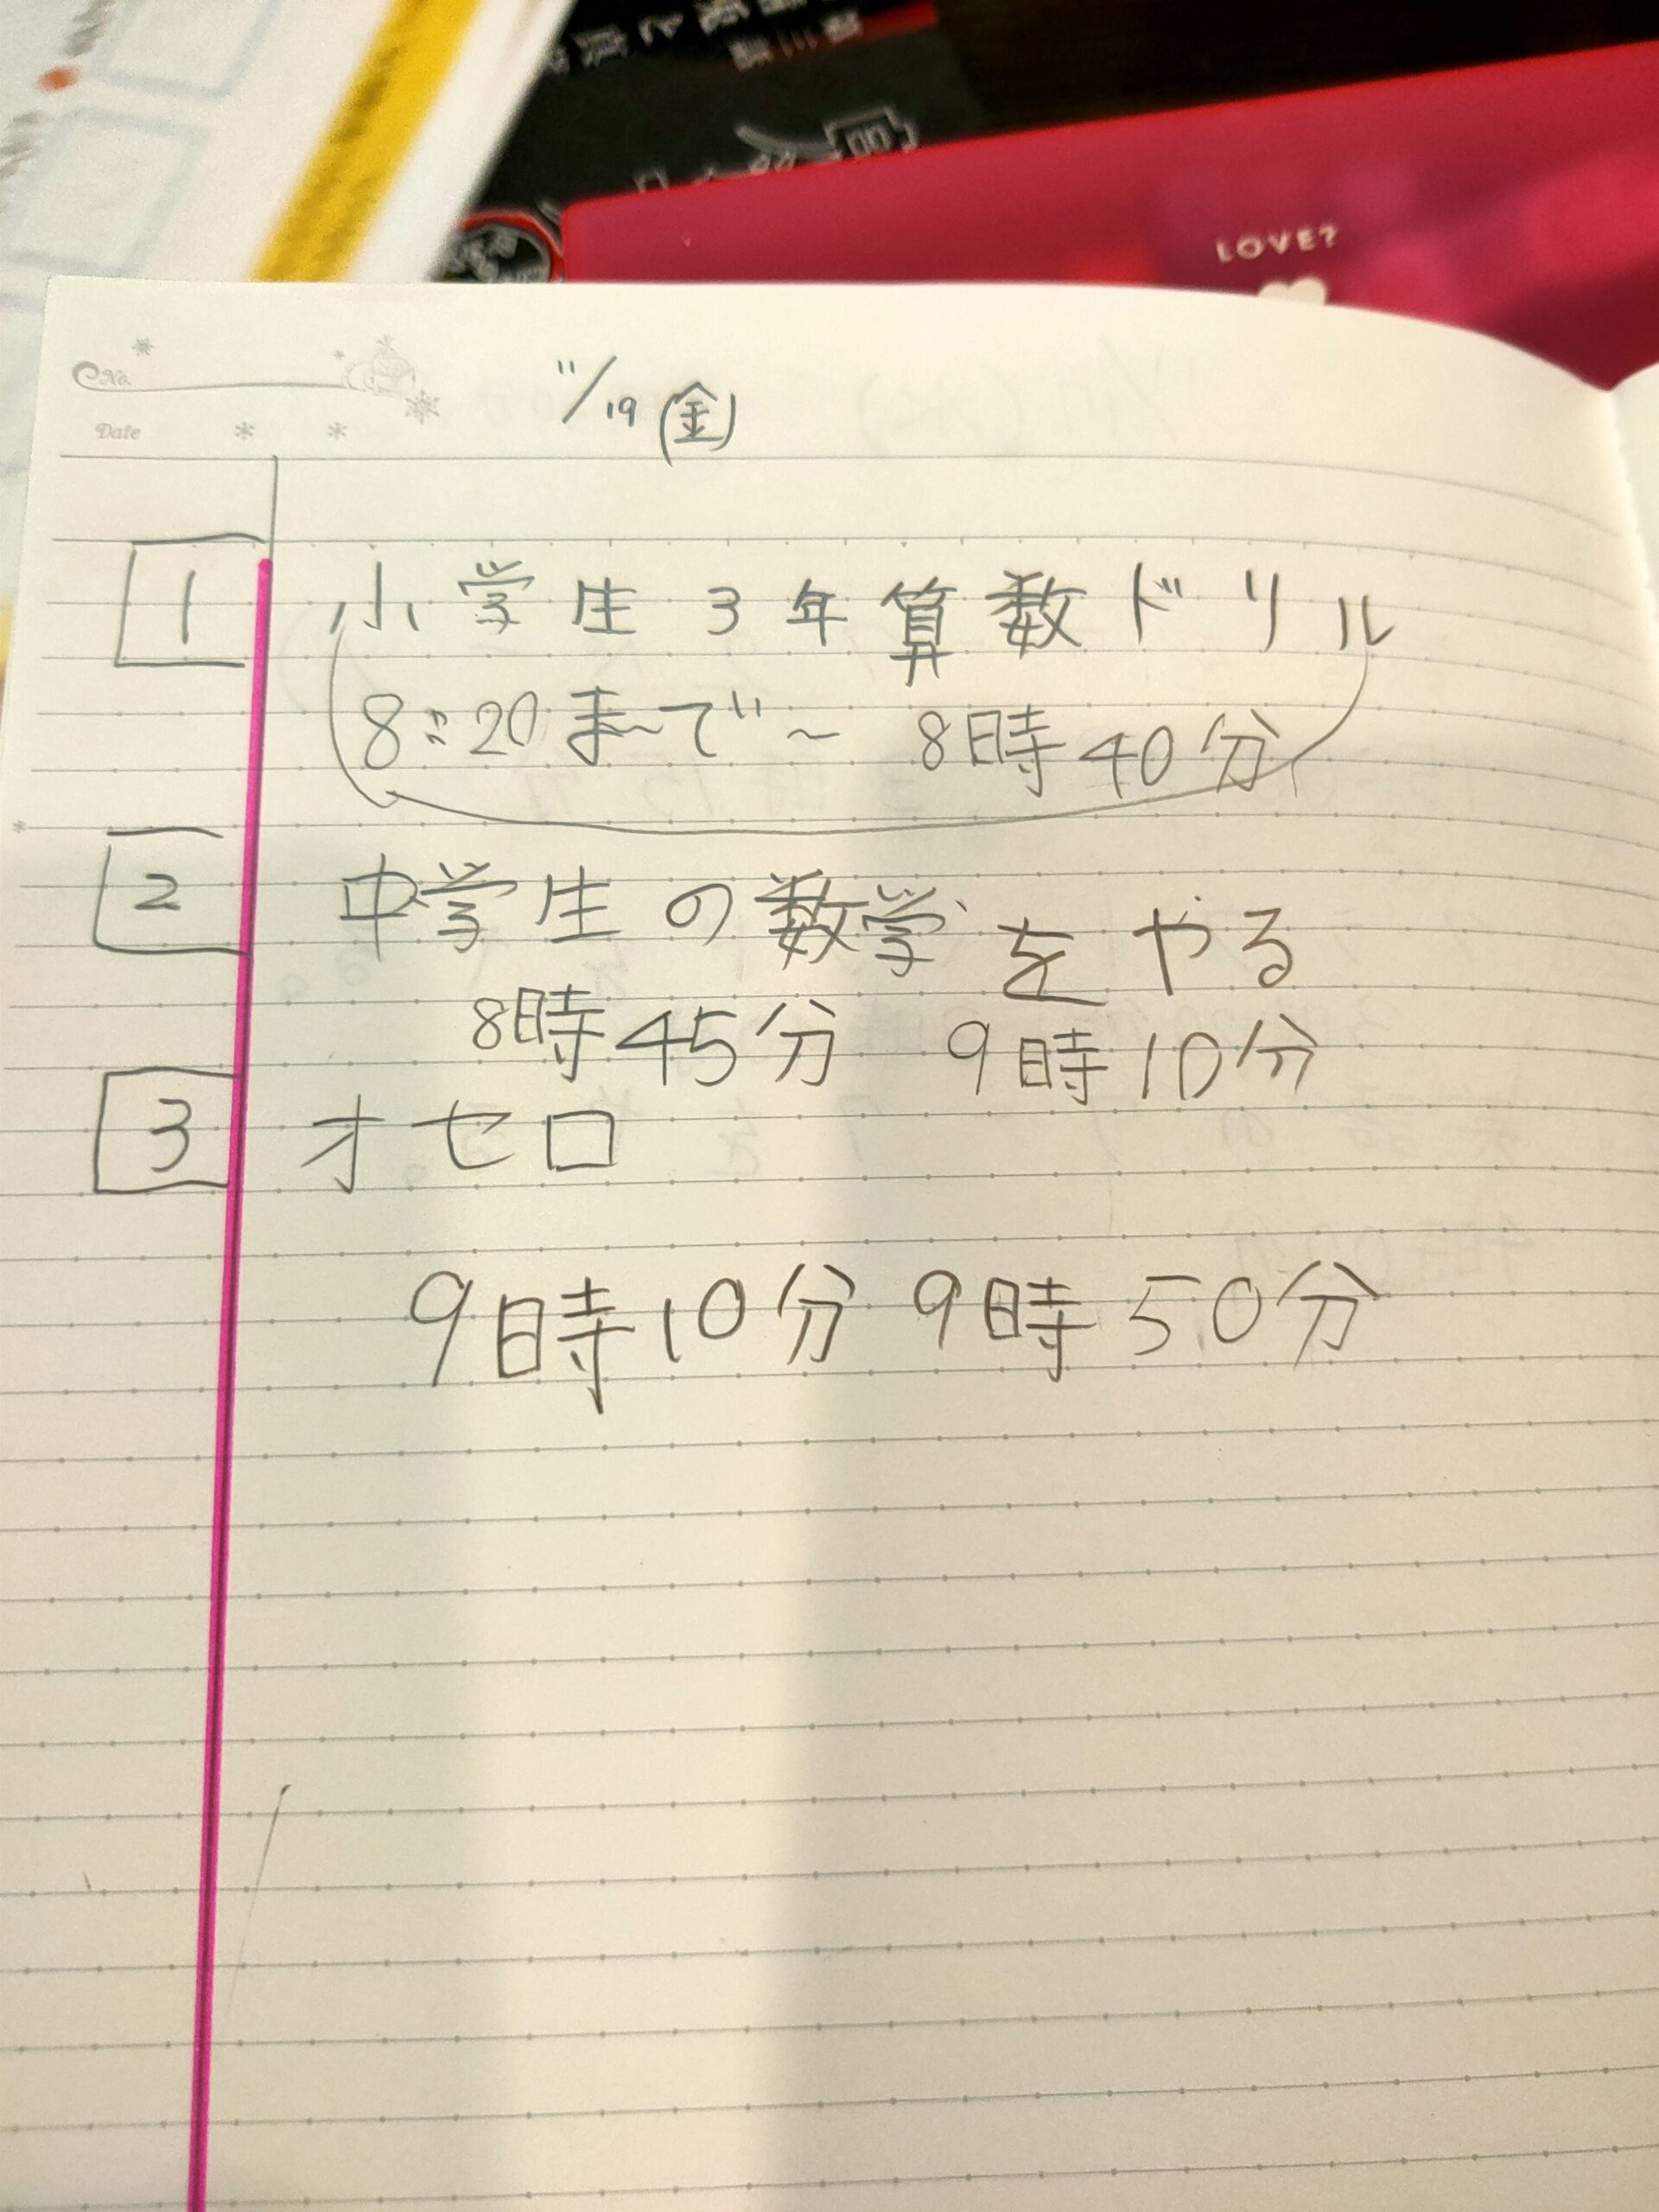 LOVE?
No.
Date
11/19(金)
1 小学生3年算数ドリル
8:20まで~8時40分
2 中学生の数学をやる
8時45分 9時10分
3 オセロ
9時10分 9時50分